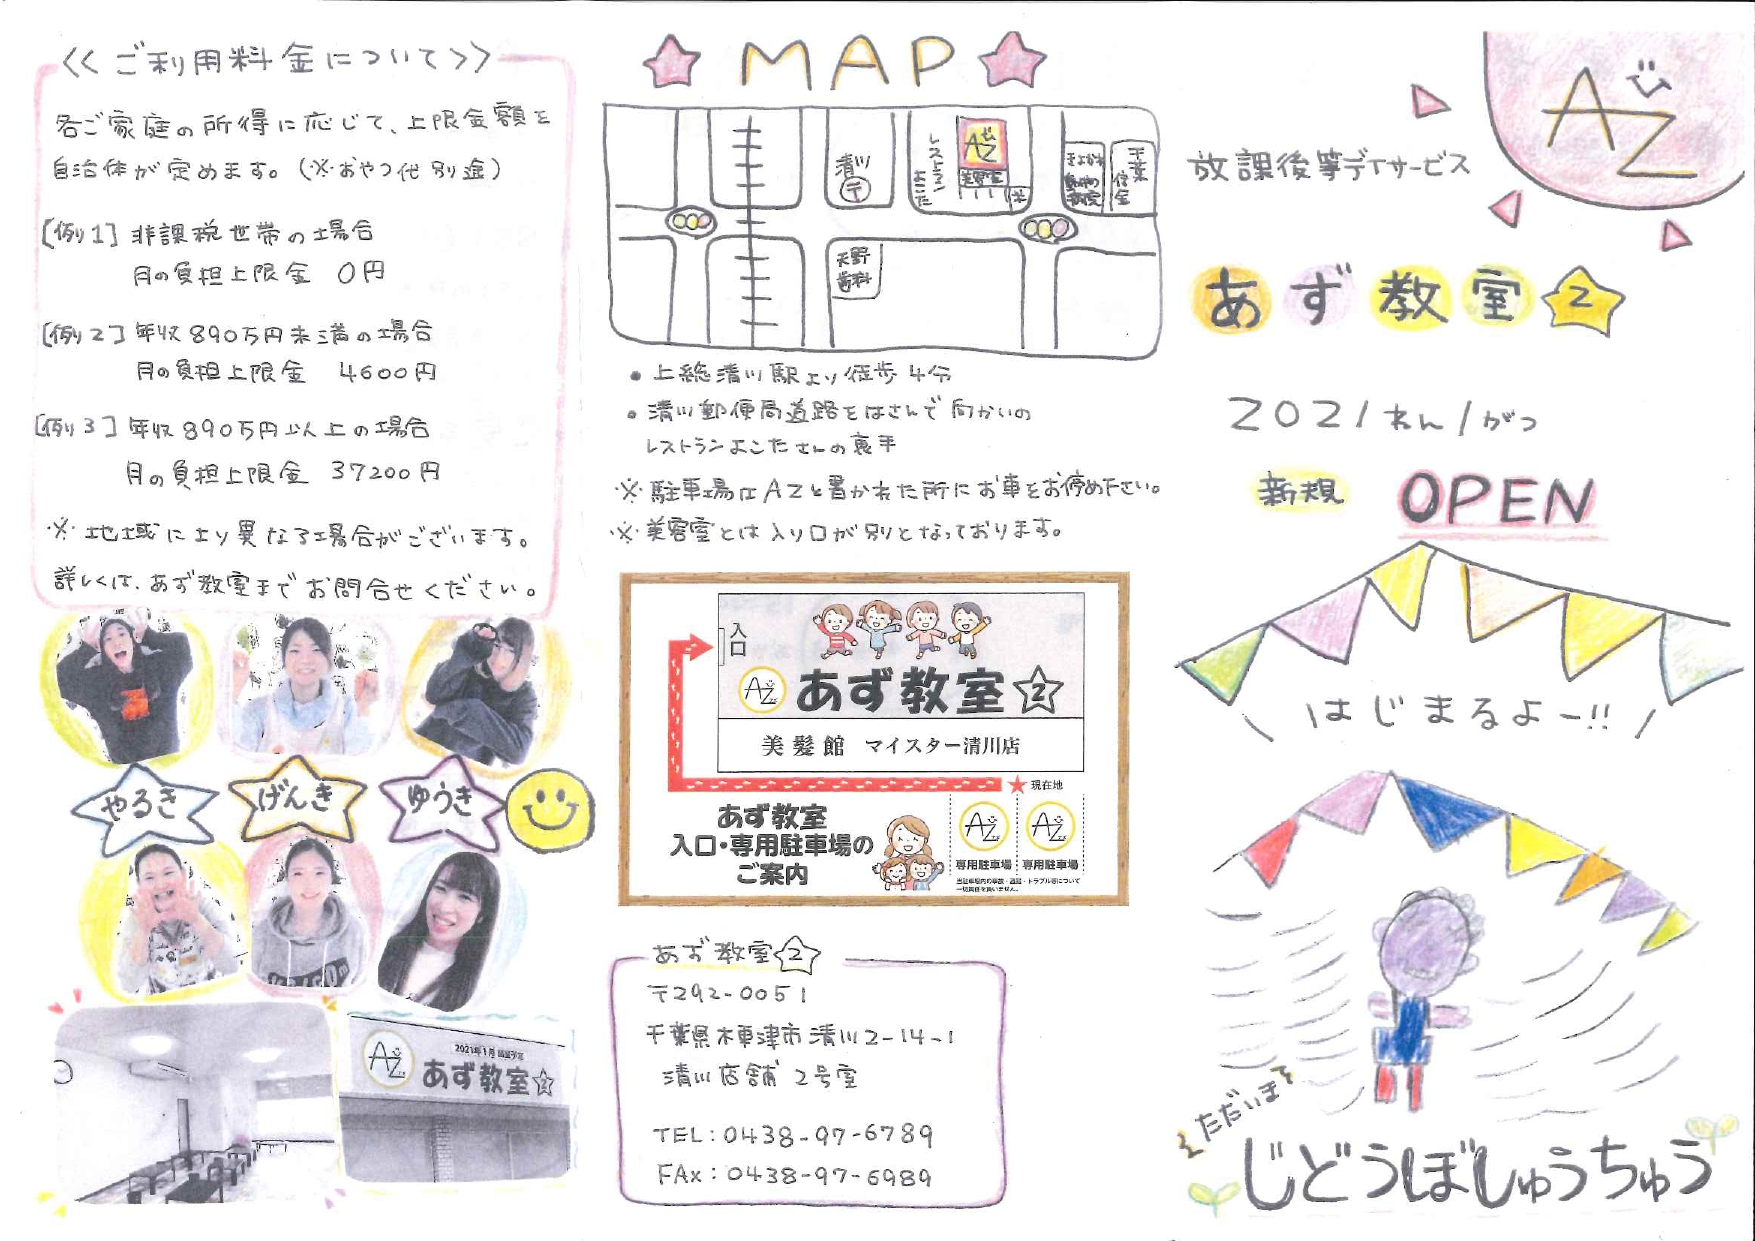 <<ご利用料金について>>
各ご家庭の所得に応じて、上限金額を
自治体が定めます。(※おやつ代別途)
[例1] 非課税世帯の場合
月の負担上限金 0円
[例2] 年収890万円未満の場合
月の負担上限金 4600円
[例3] 年収890万円以上の場合
月の負担上限金 37200円
※地域により異なる場合がございます。
詳しくは、あず教室までお問合せください。
やるき
げんき
ゆうき
AZ
2021年1月
あず教室2
MAP
清川
〒
レストラン
よこた
AZ
美容室
P
きよかわ
動物
病院
千葉
信金
天野
歯科
・上総清川駅より徒歩4分
・清川郵便局道路をはさんで向かいの
レストランよこたさんの裏手
※駐車場はAZと書かれた所にお車をお停め下さい。
※美容室とは入り口が別となっております。
入口
AZ
あず教室2
美髪館 マイスター清川店
現在地
あず教室
入口・専用駐車場の
ご案内
AZ
専用駐車場
AZ
専用駐車場
あず教室2
〒292-0051
千葉県木更津市清川2-14-1
清川店舗 2号室
TEL:0438-97-6789
FAX:0438-97-6989
AZ
放課後等デイサービス
あず教室2
2021ねん1がつ
新規 OPEN
はじまるよー!!
ただいま
じどうぼしゅうちゅう